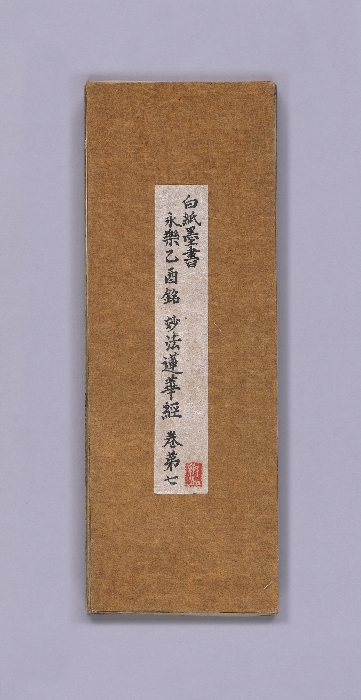 白紙墨書
永樂乙酉銘 妙法蓮華經 卷第七